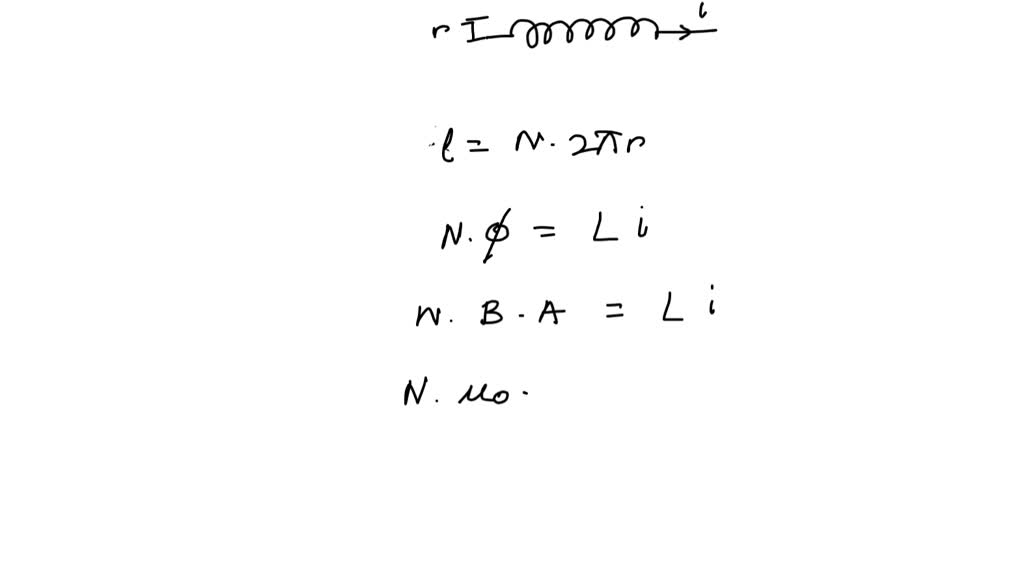 r i
l = N. 2πr
N. ϕ = L i
N. B. A = L i
N. μ0.